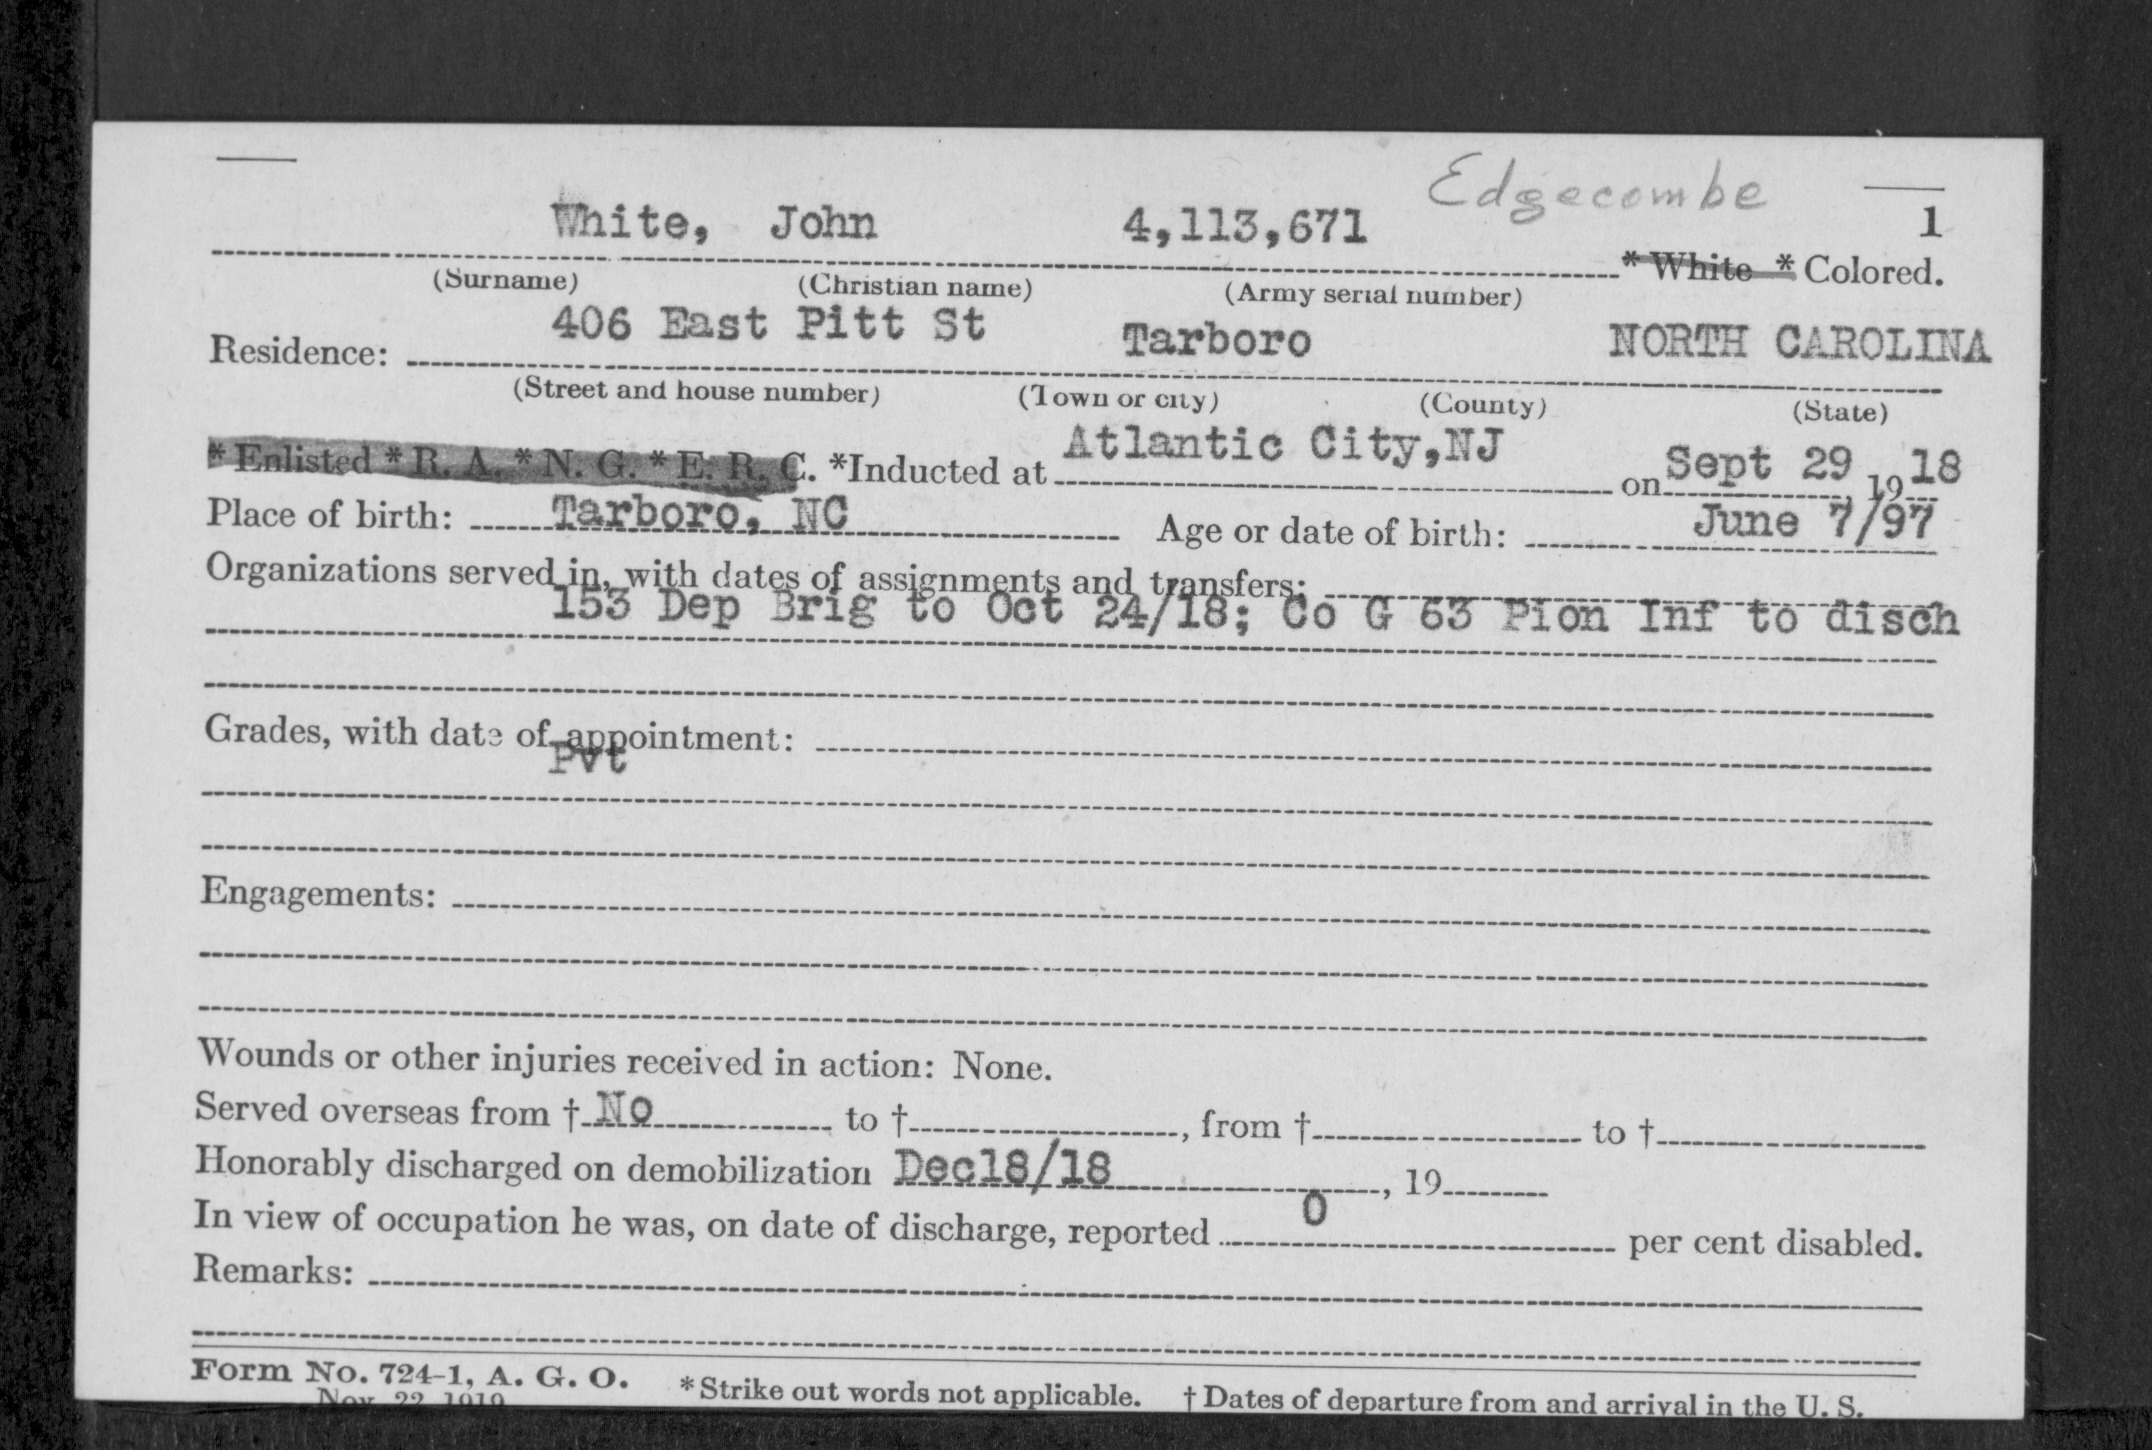 Edgecombe
White, John 4,113,671 1
* White * Colored.
(Surname) (Christian name) (Army serial number)
Residence: 406 East Pitt St Tarboro NORTH CAROLINA
(Street and house number) (Town or city) (County) (State)
* Enlisted * R. A. * N. G. * E. R. C. *Inducted at Atlantic City,NJ on Sept 29, 1918
Place of birth: Tarboro, NC Age or date of birth: June 7/97
Organizations served in, with dates of assignments and transfers:
153 Dep Brig to Oct 24/18; Co G 63 Pion Inf to disch
Grades, with date of appointment:
Pvt
Engagements:
Wounds or other injuries received in action: None.
Served overseas from † No to †, from † to †
Honorably discharged on demobilization Dec18/18, 19
In view of occupation he was, on date of discharge, reported 0 per cent disabled.
Remarks:
Form No. 724-1, A. G. O. *Strike out words not applicable. † Dates of departure from and arrival in the U. S.
Nov. 22 1919